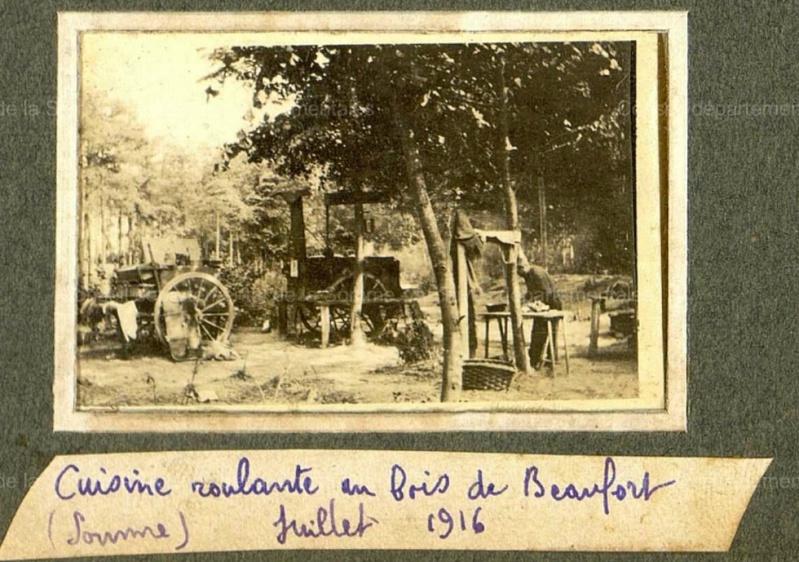 Cuisine roulante au bois de Beaufort
(Somme) Juillet 1916